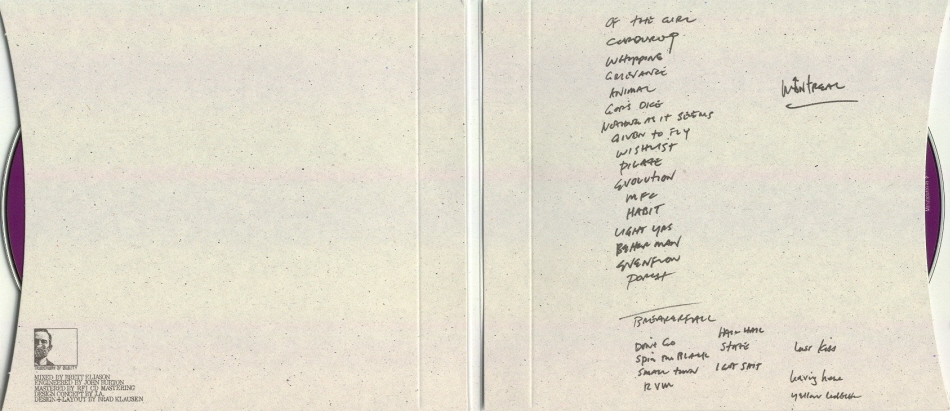 MIXED BY BRETT ELIASON
ENGINEERED BY JOHN BURTON
MASTERED BY RFI CD MASTERING
DESIGN CONCEPT BY J.A.
DESIGN+LAYOUT BY BRAD KLAUSEN
OF THE GIRL
CORDUROY
WHIPPING
GRIEVANCE
ANIMAL
GODS DICE
NOTHING AS IT SEEMS
GIVEN TO FLY
WISHLIST
PILATE
EVOLUTION
MFC
HABIT
LIGHT YRS
BETTER MAN
EVENFLOW
PORCH
MONTREAL
BREAKERFALL
DON'T GO
SPIN THE BLACK
SMALL TOWN
RVM
HAIL HAIL
STATE
I GOT SHIT
LAST KISS
leaving here
yellow ledbetter